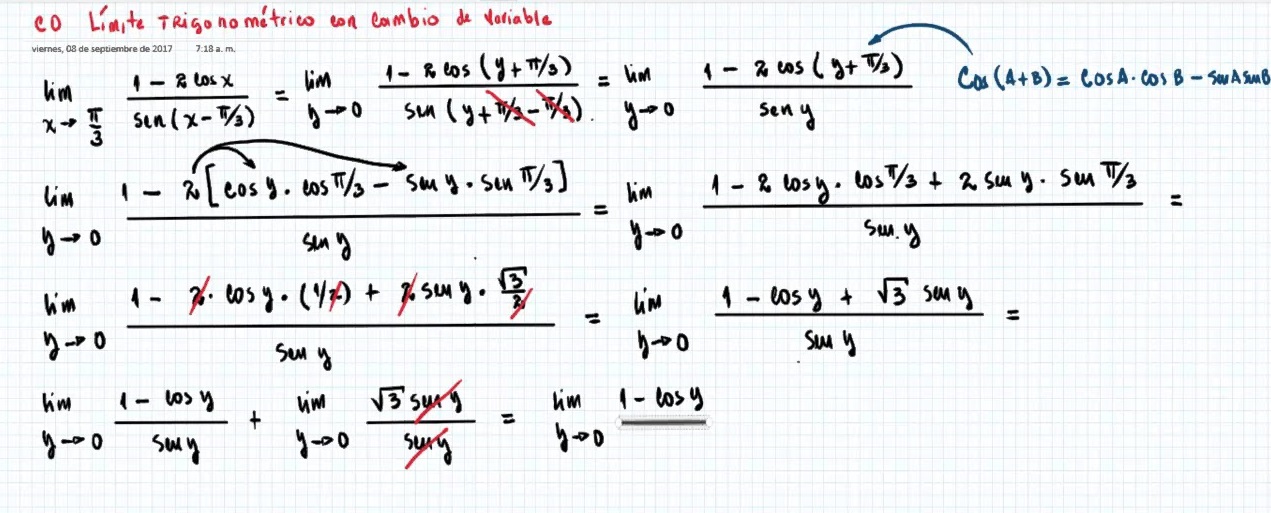 CD Límite TRigonométrico con Cambio de Variable
viernes, 08 de septiembre de 2017 7:18 a. m.
lim x→π/3 (1 - 2 cos x)/(sen (x - π/3)) = lim y→0 (1 - 2 cos (y + π/3))/(sen (y + π/3 - π/3)) = lim y→0 (1 - 2 cos (y + π/3))/(sen y) Cos (A+B) = Cos A · Cos B - sen A sen B
lim y→0 (1 - 2 [cos y · cos π/3 - sen y · sen π/3])/(sen y) = lim y→0 (1 - 2 cos y · cos π/3 + 2 sen y · sen π/3)/(sen y) =
lim y→0 (1 - 2 · cos y · (1/2) + 2 sen y · √3/2)/(sen y) = lim y→0 (1 - cos y + √3 sen y)/(sen y) =
lim y→0 (1 - cos y)/(sen y) + lim y→0 (√3 sen y)/(sen y) = lim y→0 1 - cos y